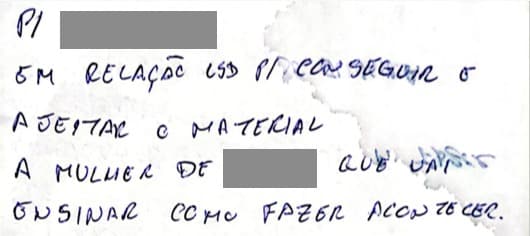 P/
EM RELAÇÃO LSD P/ CONSEGUIR E
AJEITAR O MATERIAL
A MULHER DE QUE VAI
ENSINAR COMO FAZER ACONTECER.